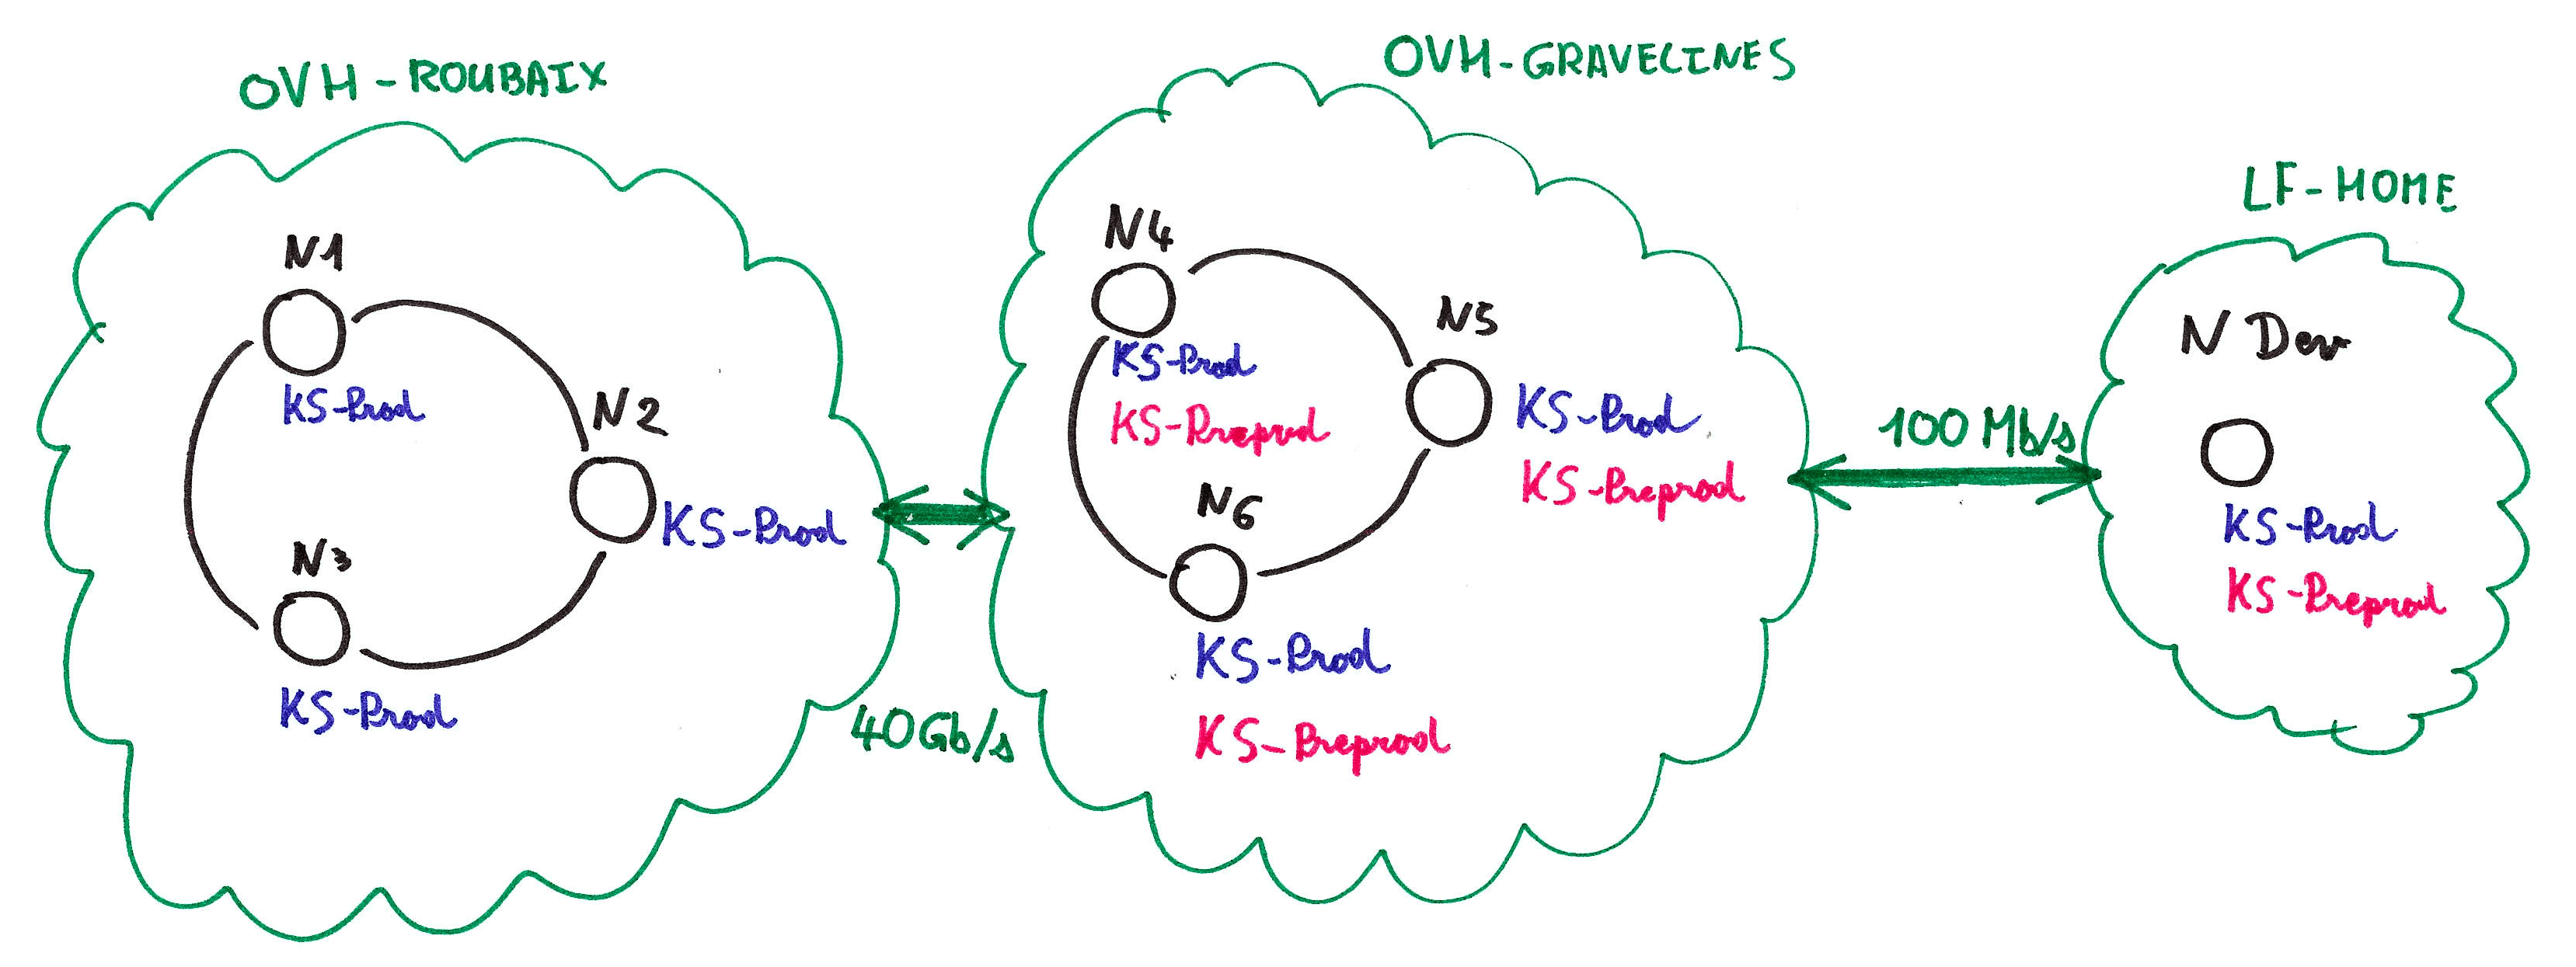 OVH-ROUBAIX
N1
KS-Prod
N2
KS-Prod
N3
KS-Prod
40Gb/s
OVH-GRAVELINES
N4
KS-Prod
KS-Preprod
N5
KS-Prod
KS-Preprod
N6
KS-Prod
KS-Preprod
100 Mb/s
LF-HOME
N Dev
KS-Prod
KS-Preprod